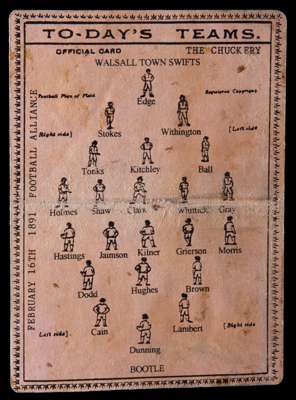 TO-DAY'S TEAMS.
OFFICIAL CARD THE CHUCKERY
WALSALL TOWN SWIFTS
Football Plan of Field Registered Copyright
Edge
Stokes Withington
[Right side] [Left side]
Tonks Kitchley Ball
Holmes Shaw Clark Whittick Gray
Hastings Jamison Kilner Grierson Morris
Dodd Hughes Brown
Cain Lambert
Left side] [Right side
Dunning
BOOTLE
FEBRUARY 16TH 1891 FOOTBALL ALLIANCE